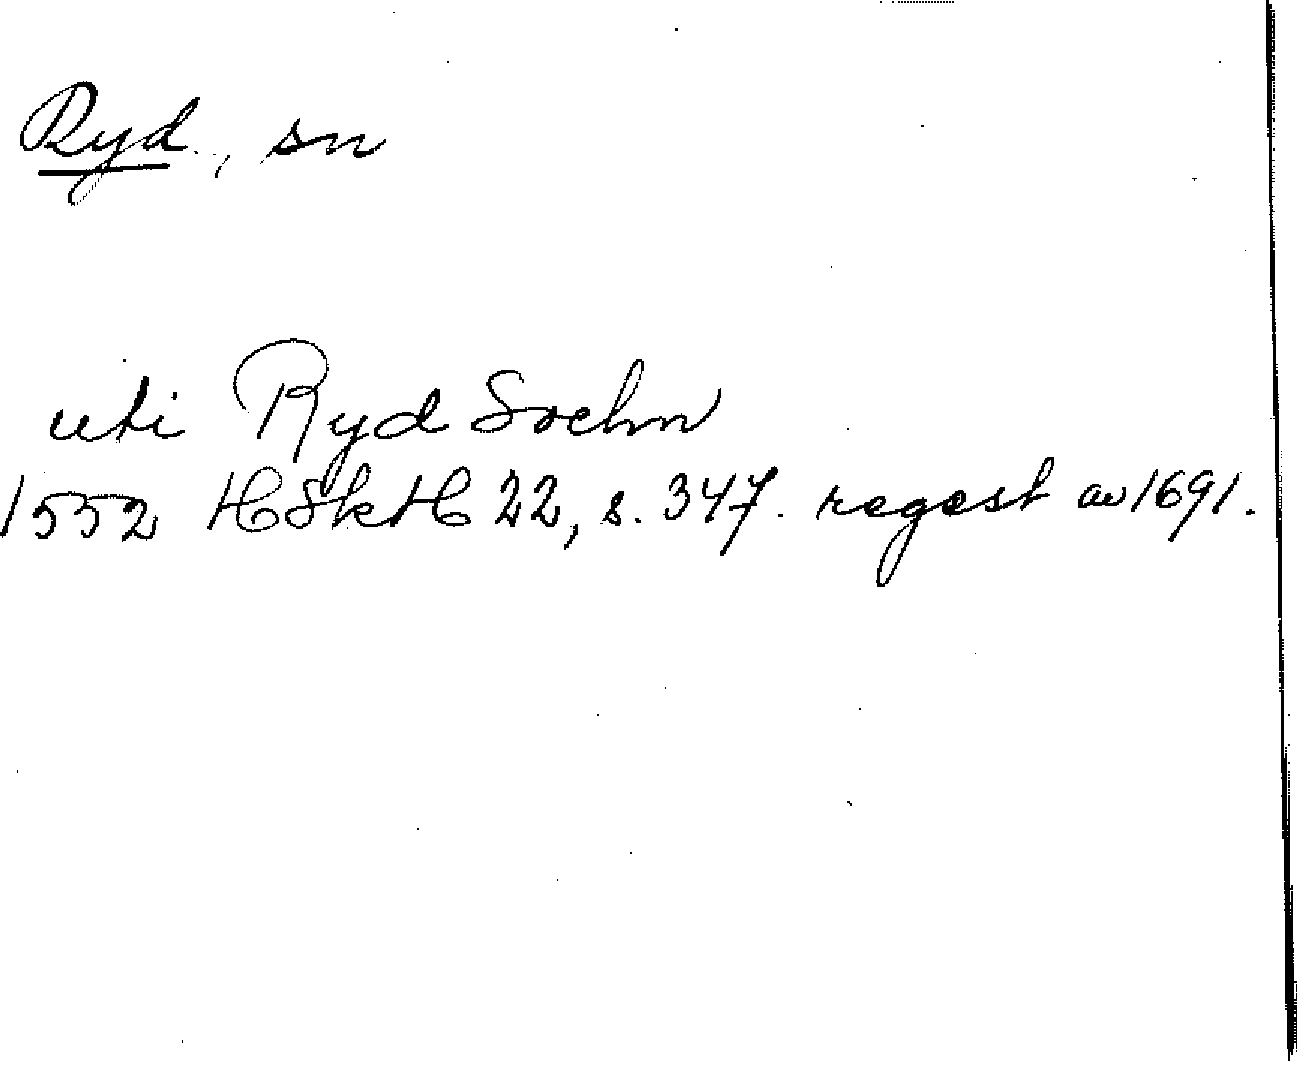 Ryd, sn
uti Ryd Sochn
1552 HSkH 22, s. 347. regest av 1691.